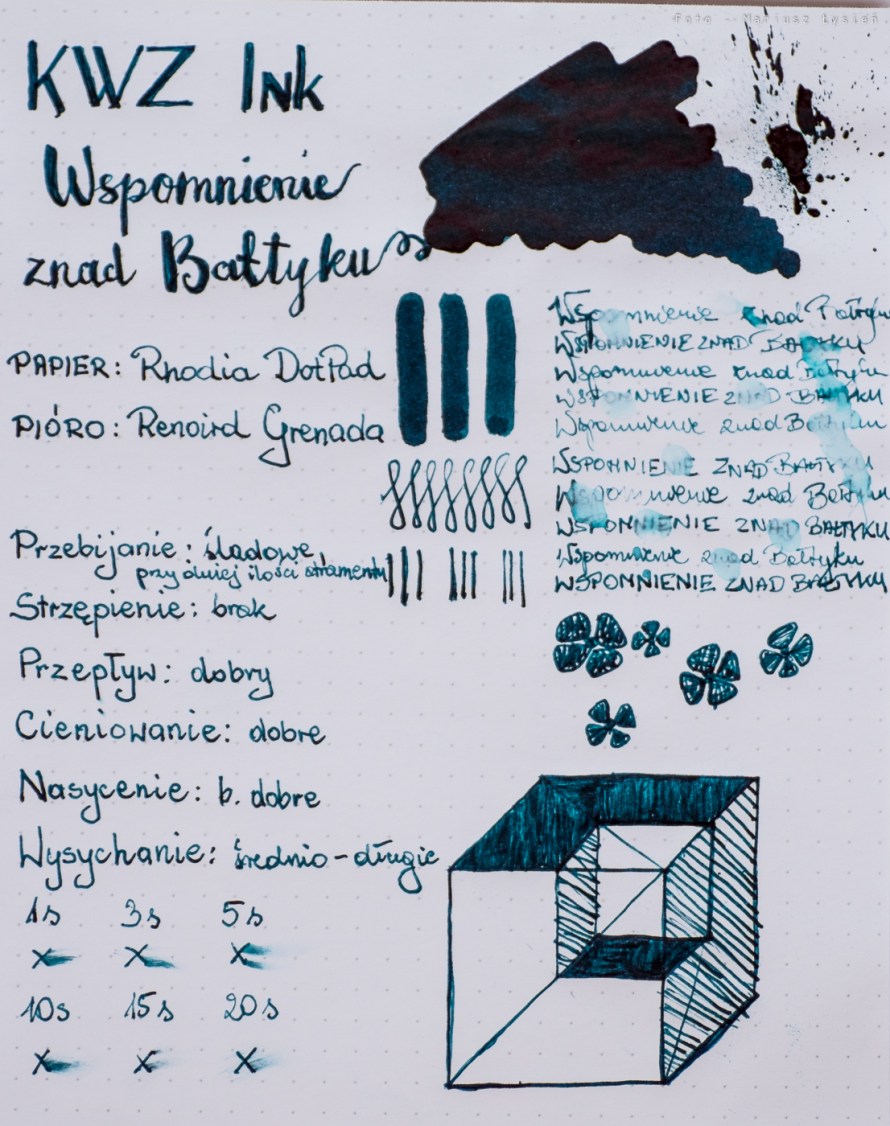 Foto - Mariusz
KWZ Ink
Wspomnienie
znad Bałtyku
PAPIER: Rhodia DotPad
PIÓRO: Renoird Grenada
Przebijanie: śladowe,
przy dużej ilości atramentu
Strzępienie: brak
Przepływ: dobry
Cieniowanie: dobre
Nasycenie: b. dobre
Wysychanie: średnio-długie
1s 3s 5s
x x x
10s 15s 20s
x x x
Wspomnienie znad Bałtyku
WSPOMNIENIE ZNAD BAŁTYKU
Wspomnienie znad Bałtyku
WSPOMNIENIE ZNAD BAŁTYKU
Wspomnienie znad Bałtyku
WSPOMNIENIE ZNAD BAŁTYKU
Wspomnienie znad Bałtyku
WSPOMNIENIE ZNAD BAŁTYKU
Wspomnienie znad Bałtyku
WSPOMNIENIE ZNAD BAŁTYKU